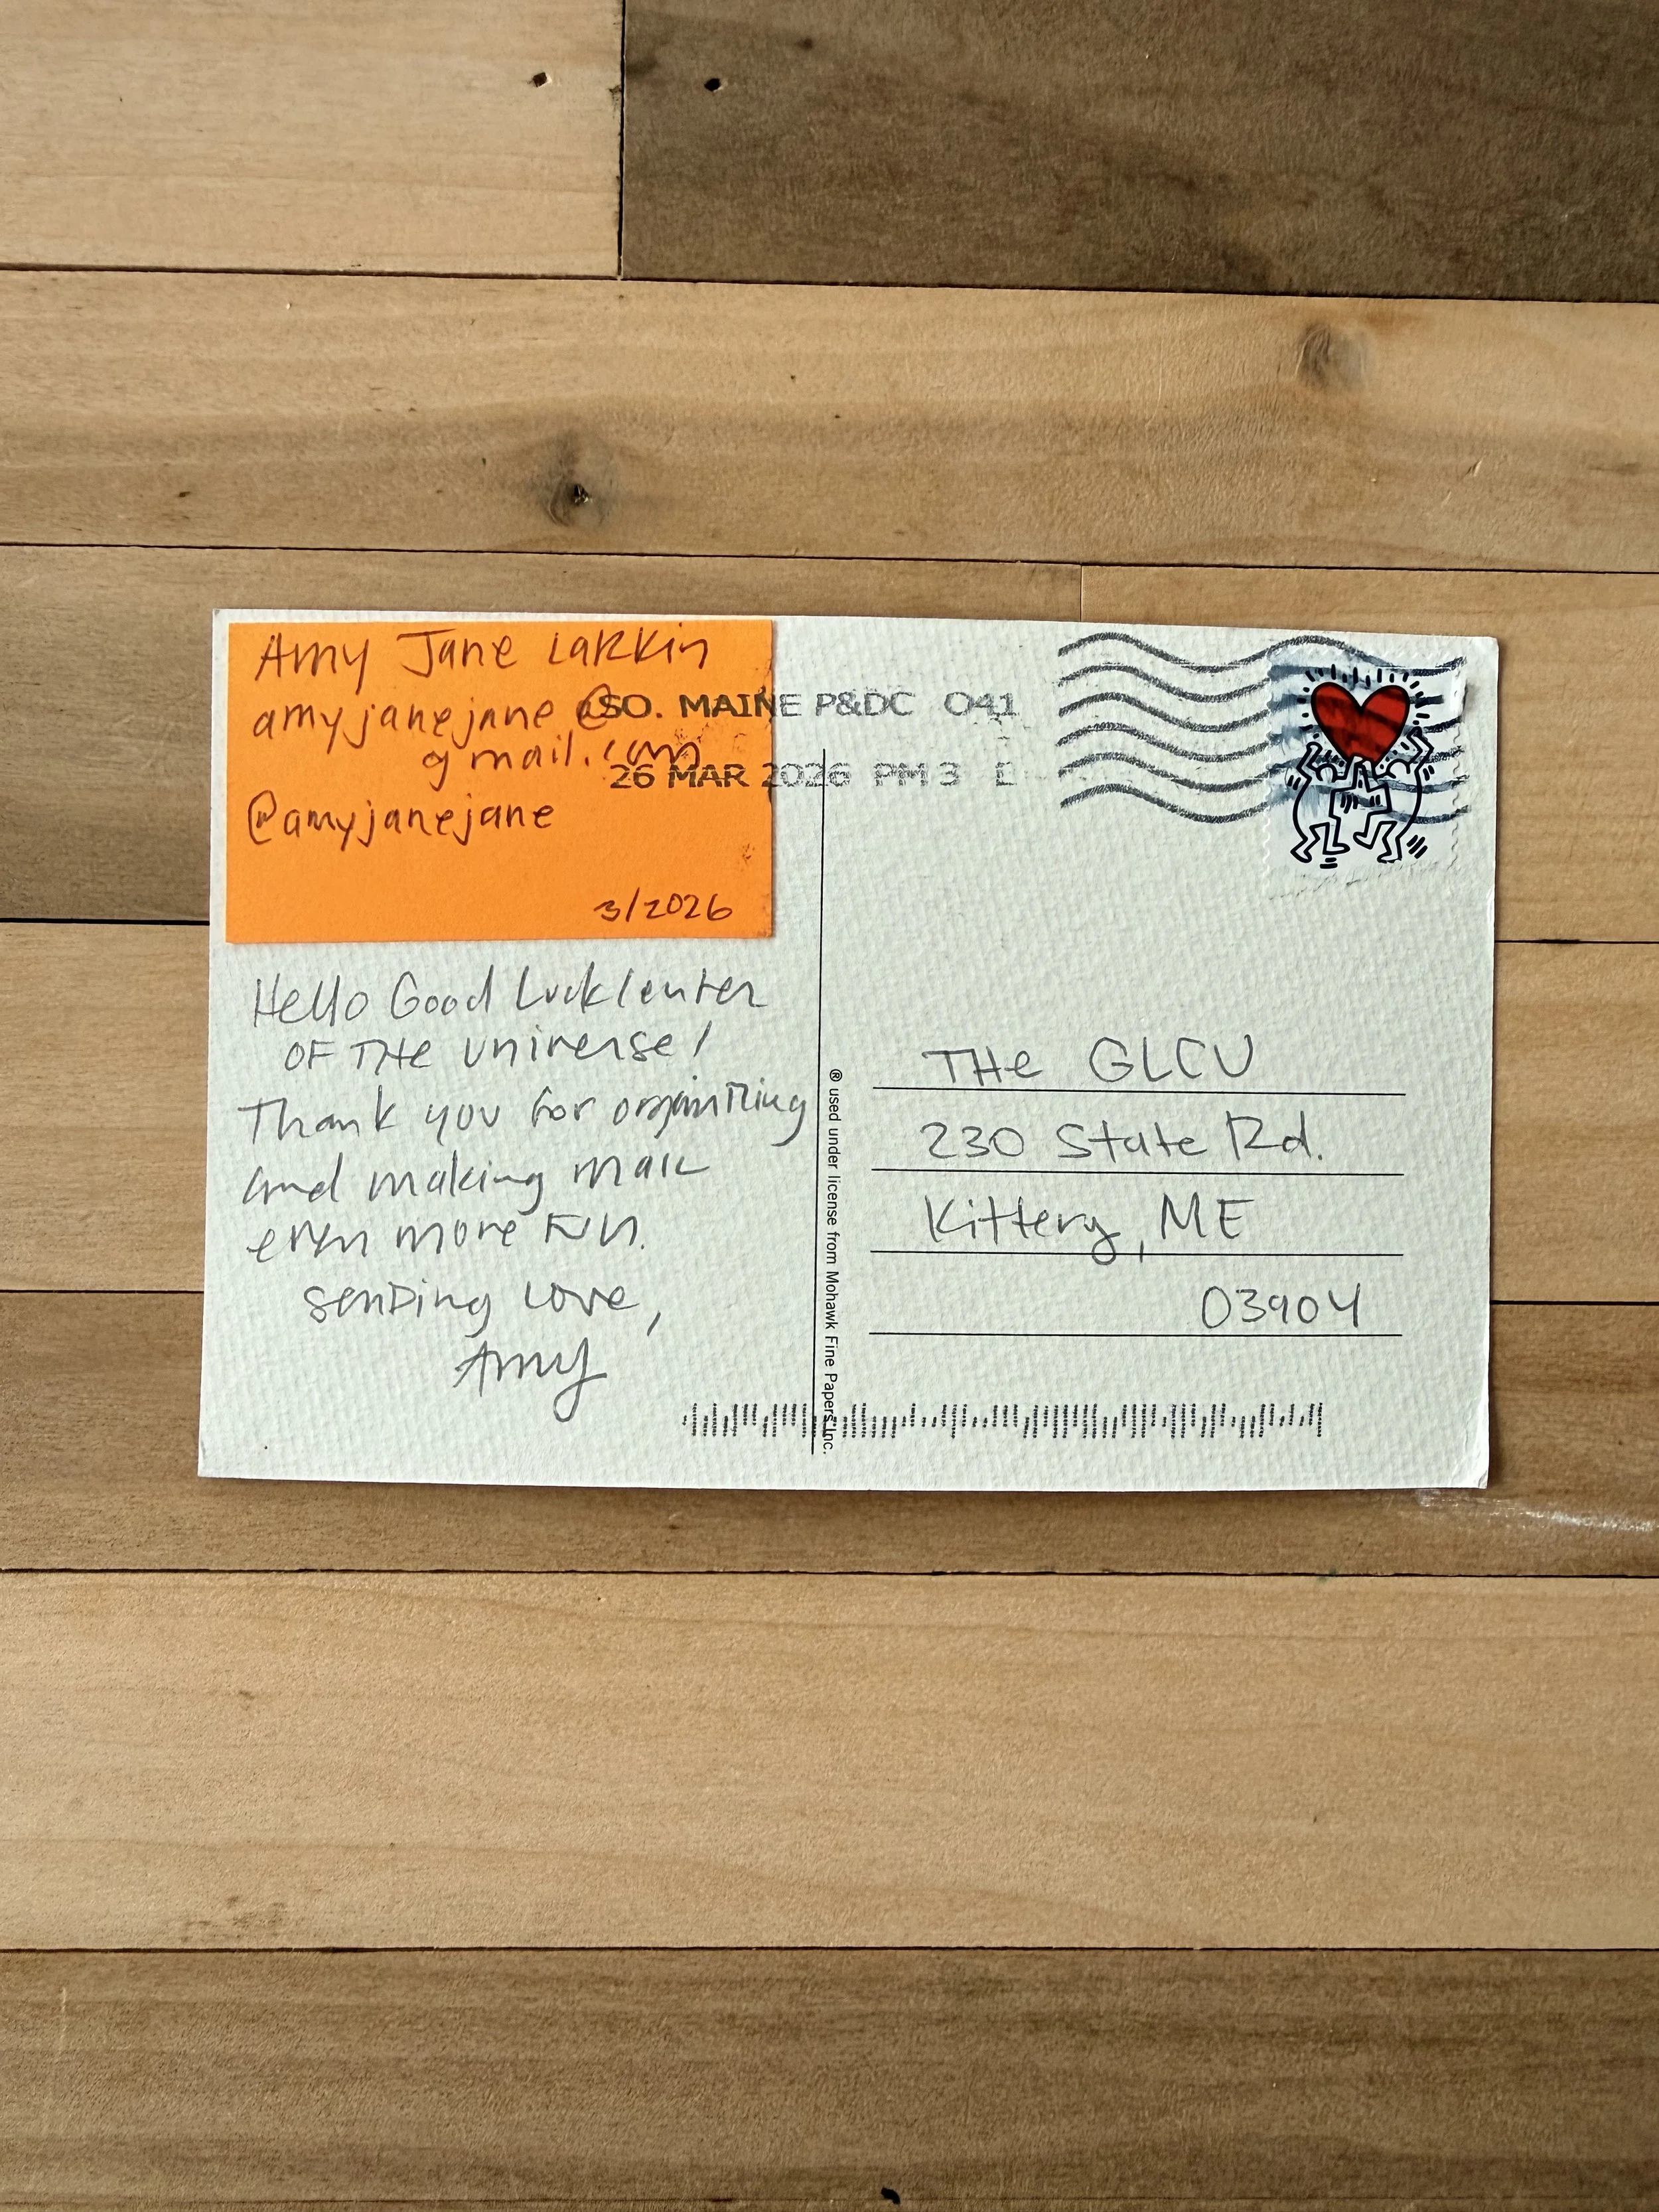 Amy Jane Larkin
amyjanejane@
gmail.com
@amyjanejane
3/2026
SO. MAINE P&DC 041
26 MAR 2026 PM 3 L
Hello Good Luck Center
OF THE Universe!
Thank you for organizing
and making mail
even more FUN.
sending love,
Amy
® used under license from Mohawk Fine Papers Inc.
THe GLCU
230 State Rd.
Kittery, ME
03904